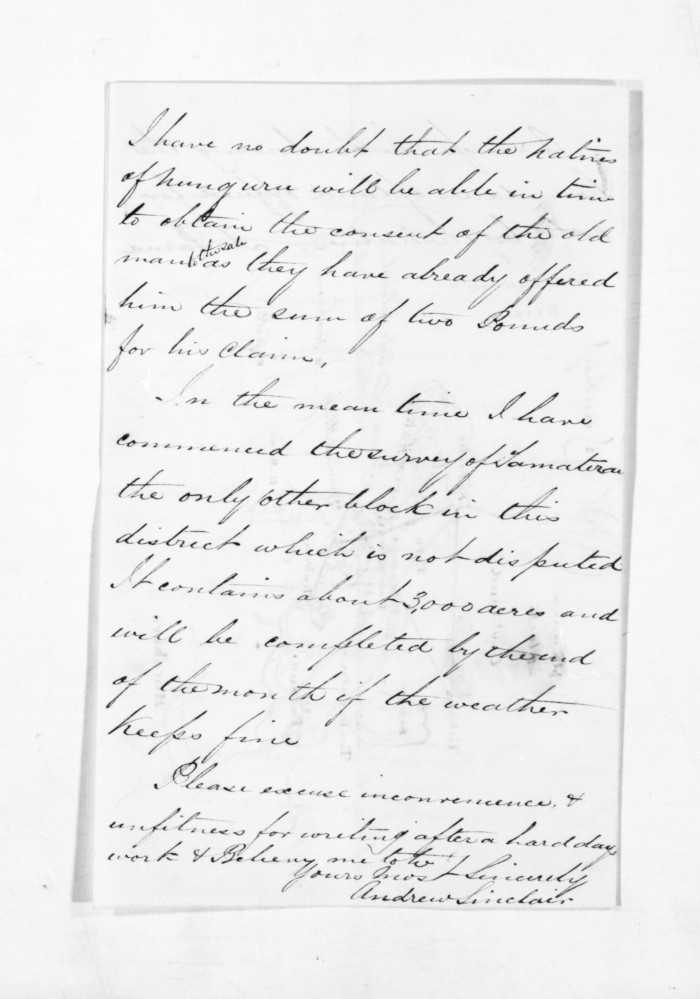 I have no doubt that the natives
of nunguru will be able in time
to obtain the consent of the old
man to the sale as they have already offered
him the sum of two Pounds
for his Claim,
In the mean time I have
commenced the survey of Tamaterau
the only other block in this
district which is not disputed
It contains about 3,000 acres and
will be completed by the end
of the month if the weather
Keeps fine
Please excuse inconvenience, &
unfitness for writing after a hard days
work & Believe me to be
Yours most Sincerely
Andrew Sinclair